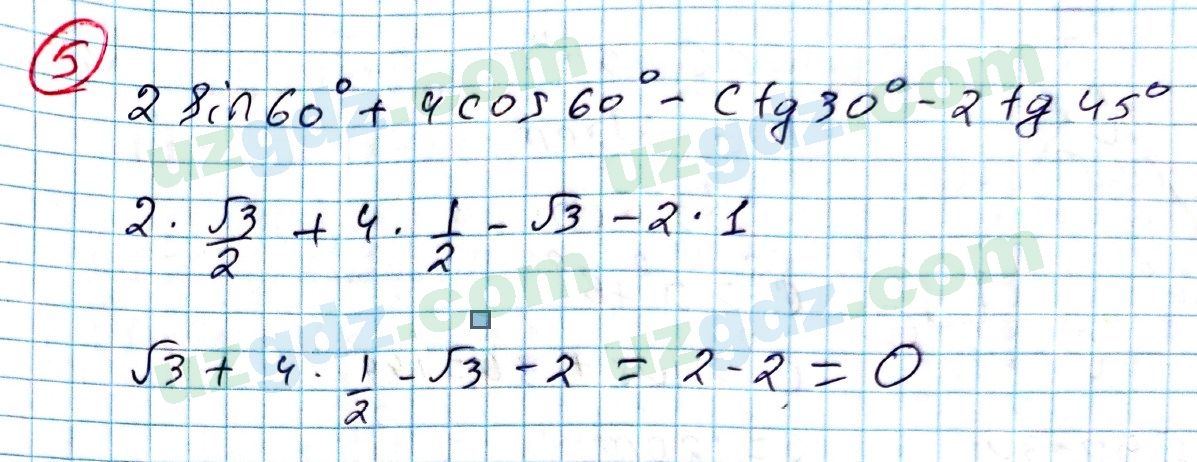 5
2 sin60° + 4cos60° - ctg30° - 2tg45°
2 · √3/2 + 4 · 1/2 - √3 - 2 · 1
√3 + 4 · 1/2 - √3 - 2 = 2 - 2 = 0
uzgdz.com
uzgdz.com
uzgdz.com
uzgdz.com